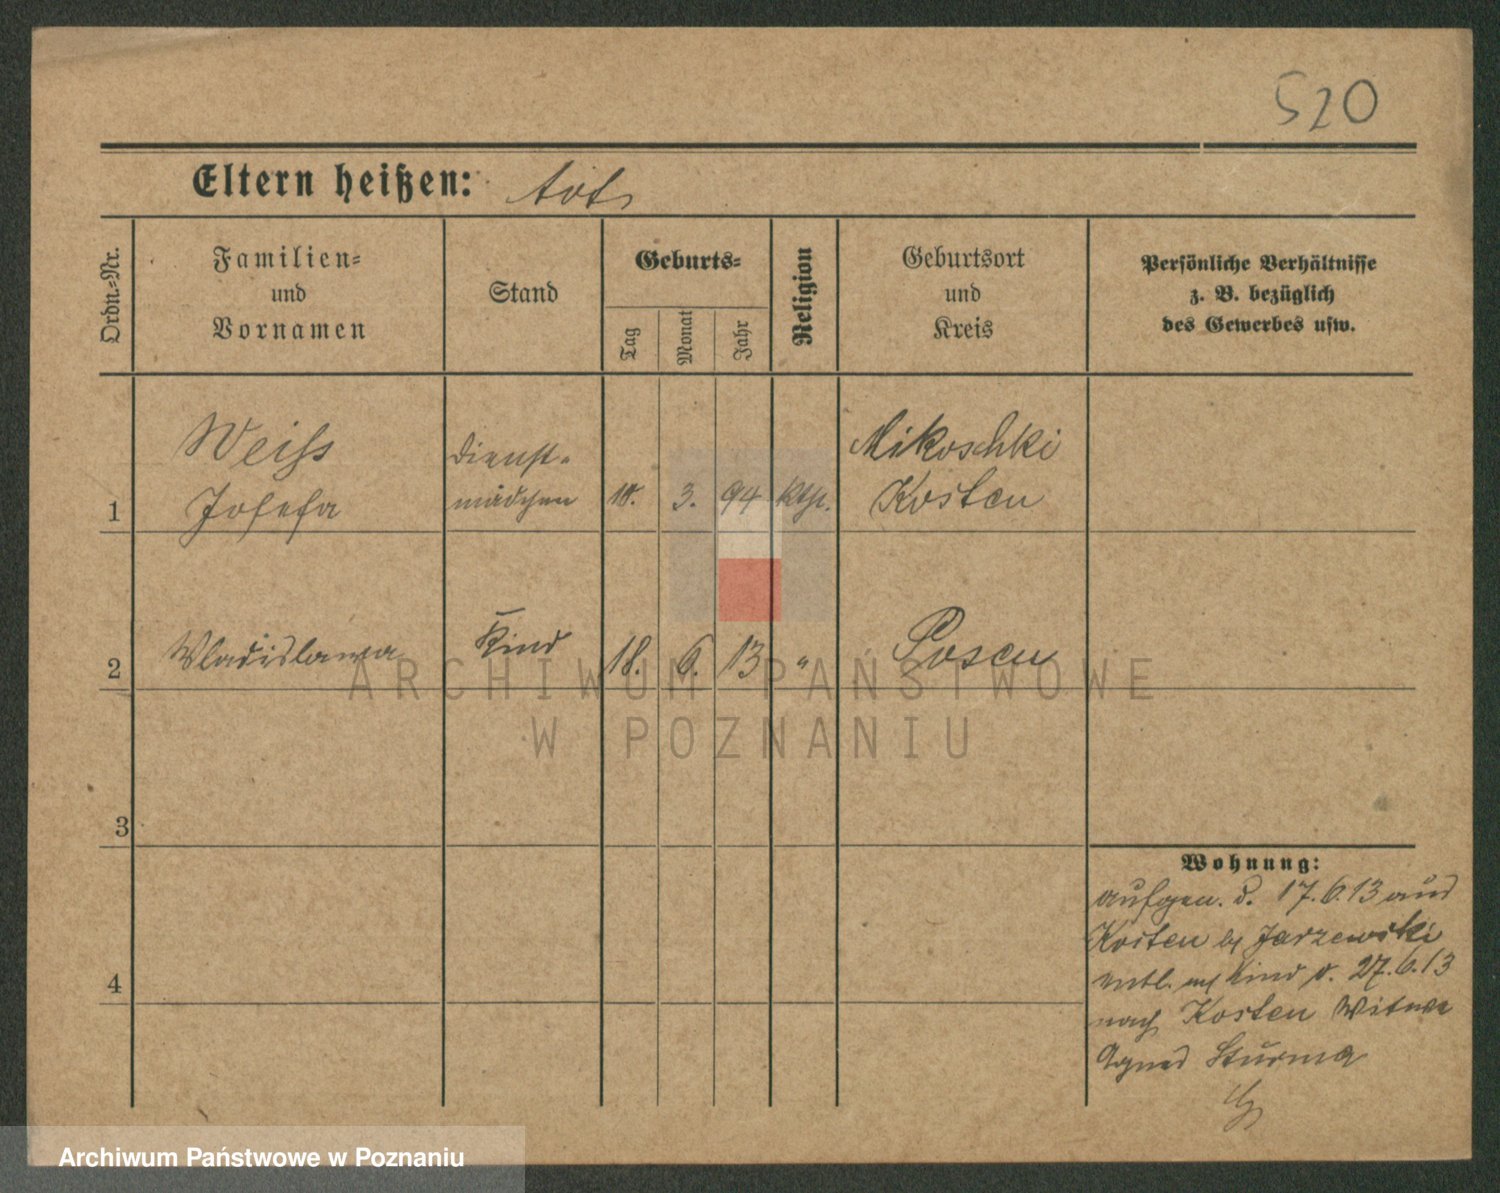 520
Eltern heißen: tot,
Ordn.-Nr.
Familien-
und
Vornamen
Stand
Geburts-
Tag
Monat
Jahr
Religion
Geburtsort
und
Kreis
Persönliche Verhältnisse
z. B. bezüglich
des Gewerbes usw.
1
Weiss
Josefa
Dienst-
mädchen
3.
94
kth.
Mikoschki
Kosten
2
Wladislawa
Kind
18.
6.
13
"
Posen
3
4
Wohnung:
aufgen. d. 17.6.13 aus
Kosten by Jarzewski
entl. mit Kind d. 27.6.13
nach Kosten Witwe
Agnes Sturma
ARCHIWUM PAŃSTWOWE
W POZNANIU
Archiwum Państwowe w Poznaniu